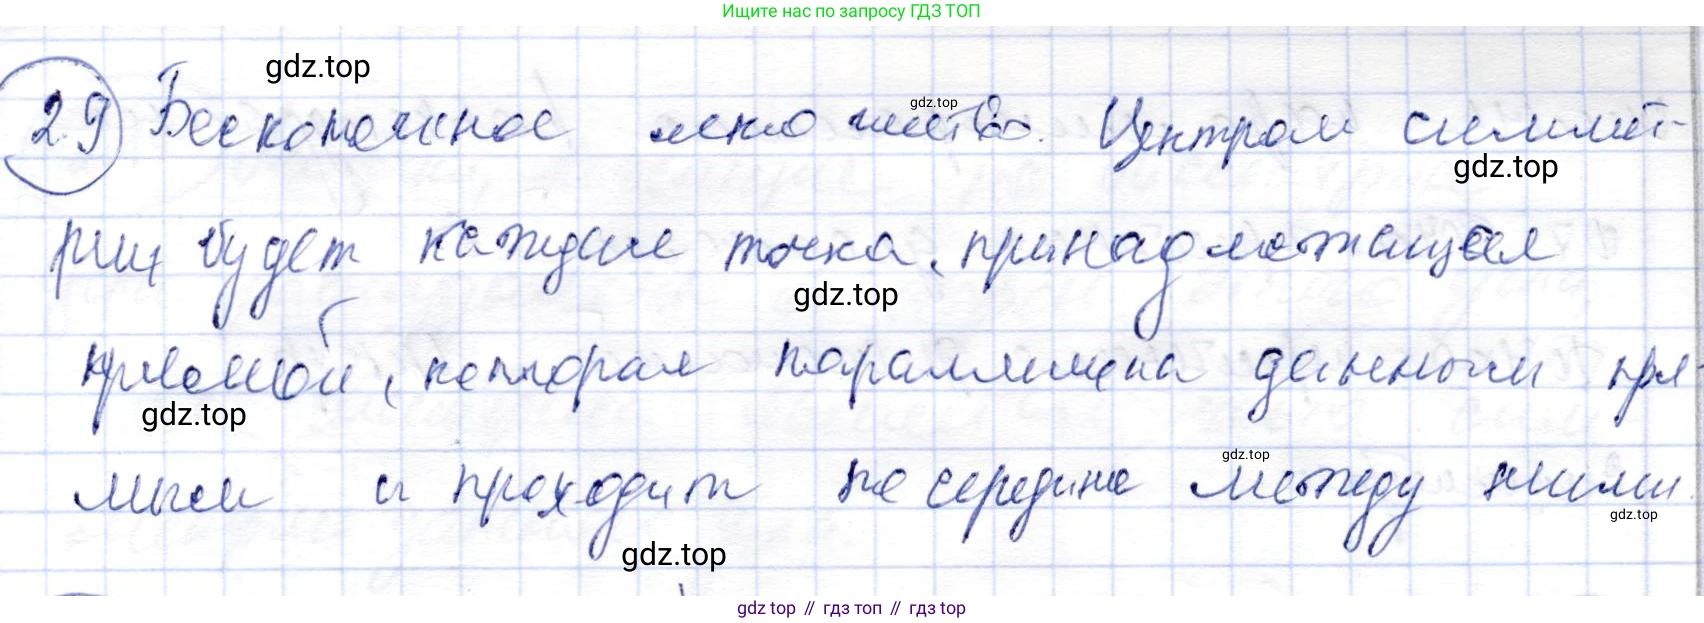 Ищите нас по запросу ГДЗ ТОП
gdz.top
29 Бесконечное множество. Центром симмет-
gdz.top
gdz.top
рии будет каждая точка, принадлежащая
gdz.top
прямой, которая параллельна данным пря-
gdz.top
мым и проходит посередине между ними.
gdz.top
gdz.top
gdz.top
gdz top // гдз топ // гдз top